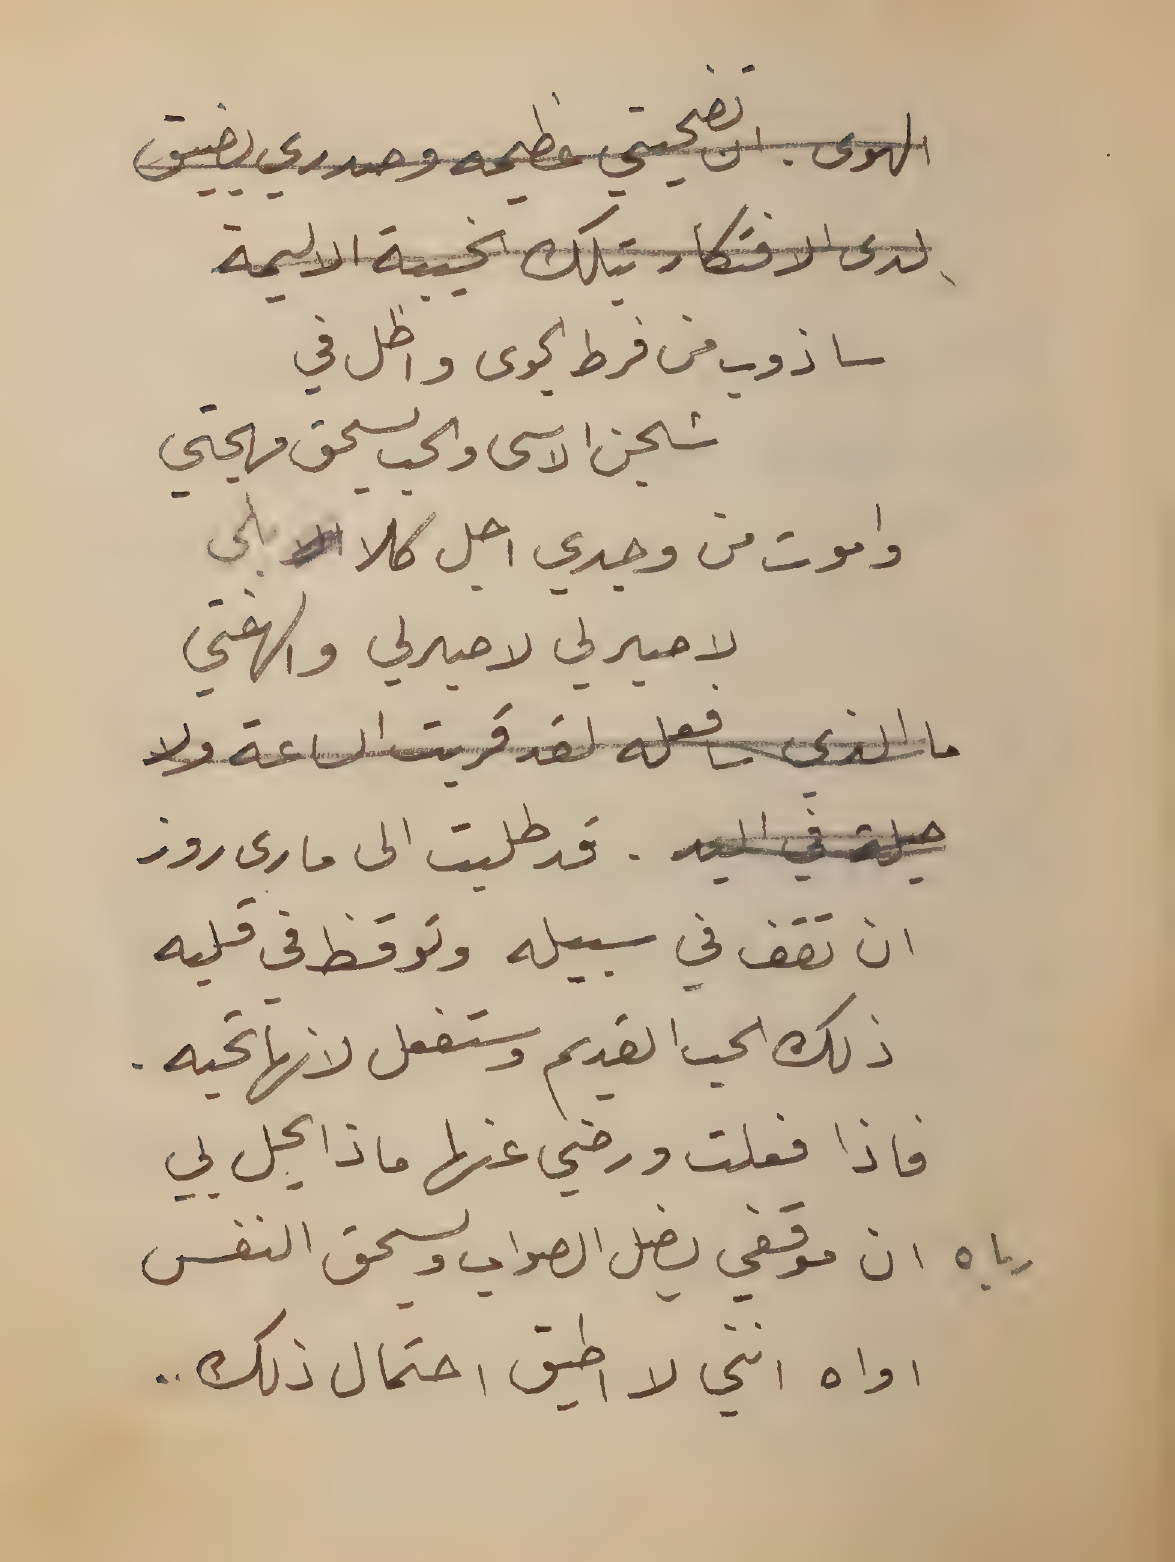 الهوى . ان تضحيتي عظيمه وصدري يضيق
لدى الافتكار بتلك الخيبة الاليمة
ساذوب من فرط الجوى واظل في
شجن الاسى والحب يسحق مهجتي
واموت من وجدي اجل كلا بلى
لا صبر لي لا صبر لي والهفتي
ما الذي سافعله لقد قربت الساعة ولا
حيلة في اليد . قد طلبت الى ماري روز
ان تقف في سبيله وتوقظ في قلبه
ذلك الحب القديم وستفعل لانها تحبه .
فاذا فعلت ورضي عنها ماذا يحل بي
رباه ان موقفي يضل الصواب ويسحق النفس
اواه انني لا اطيق احتمال ذلك ..